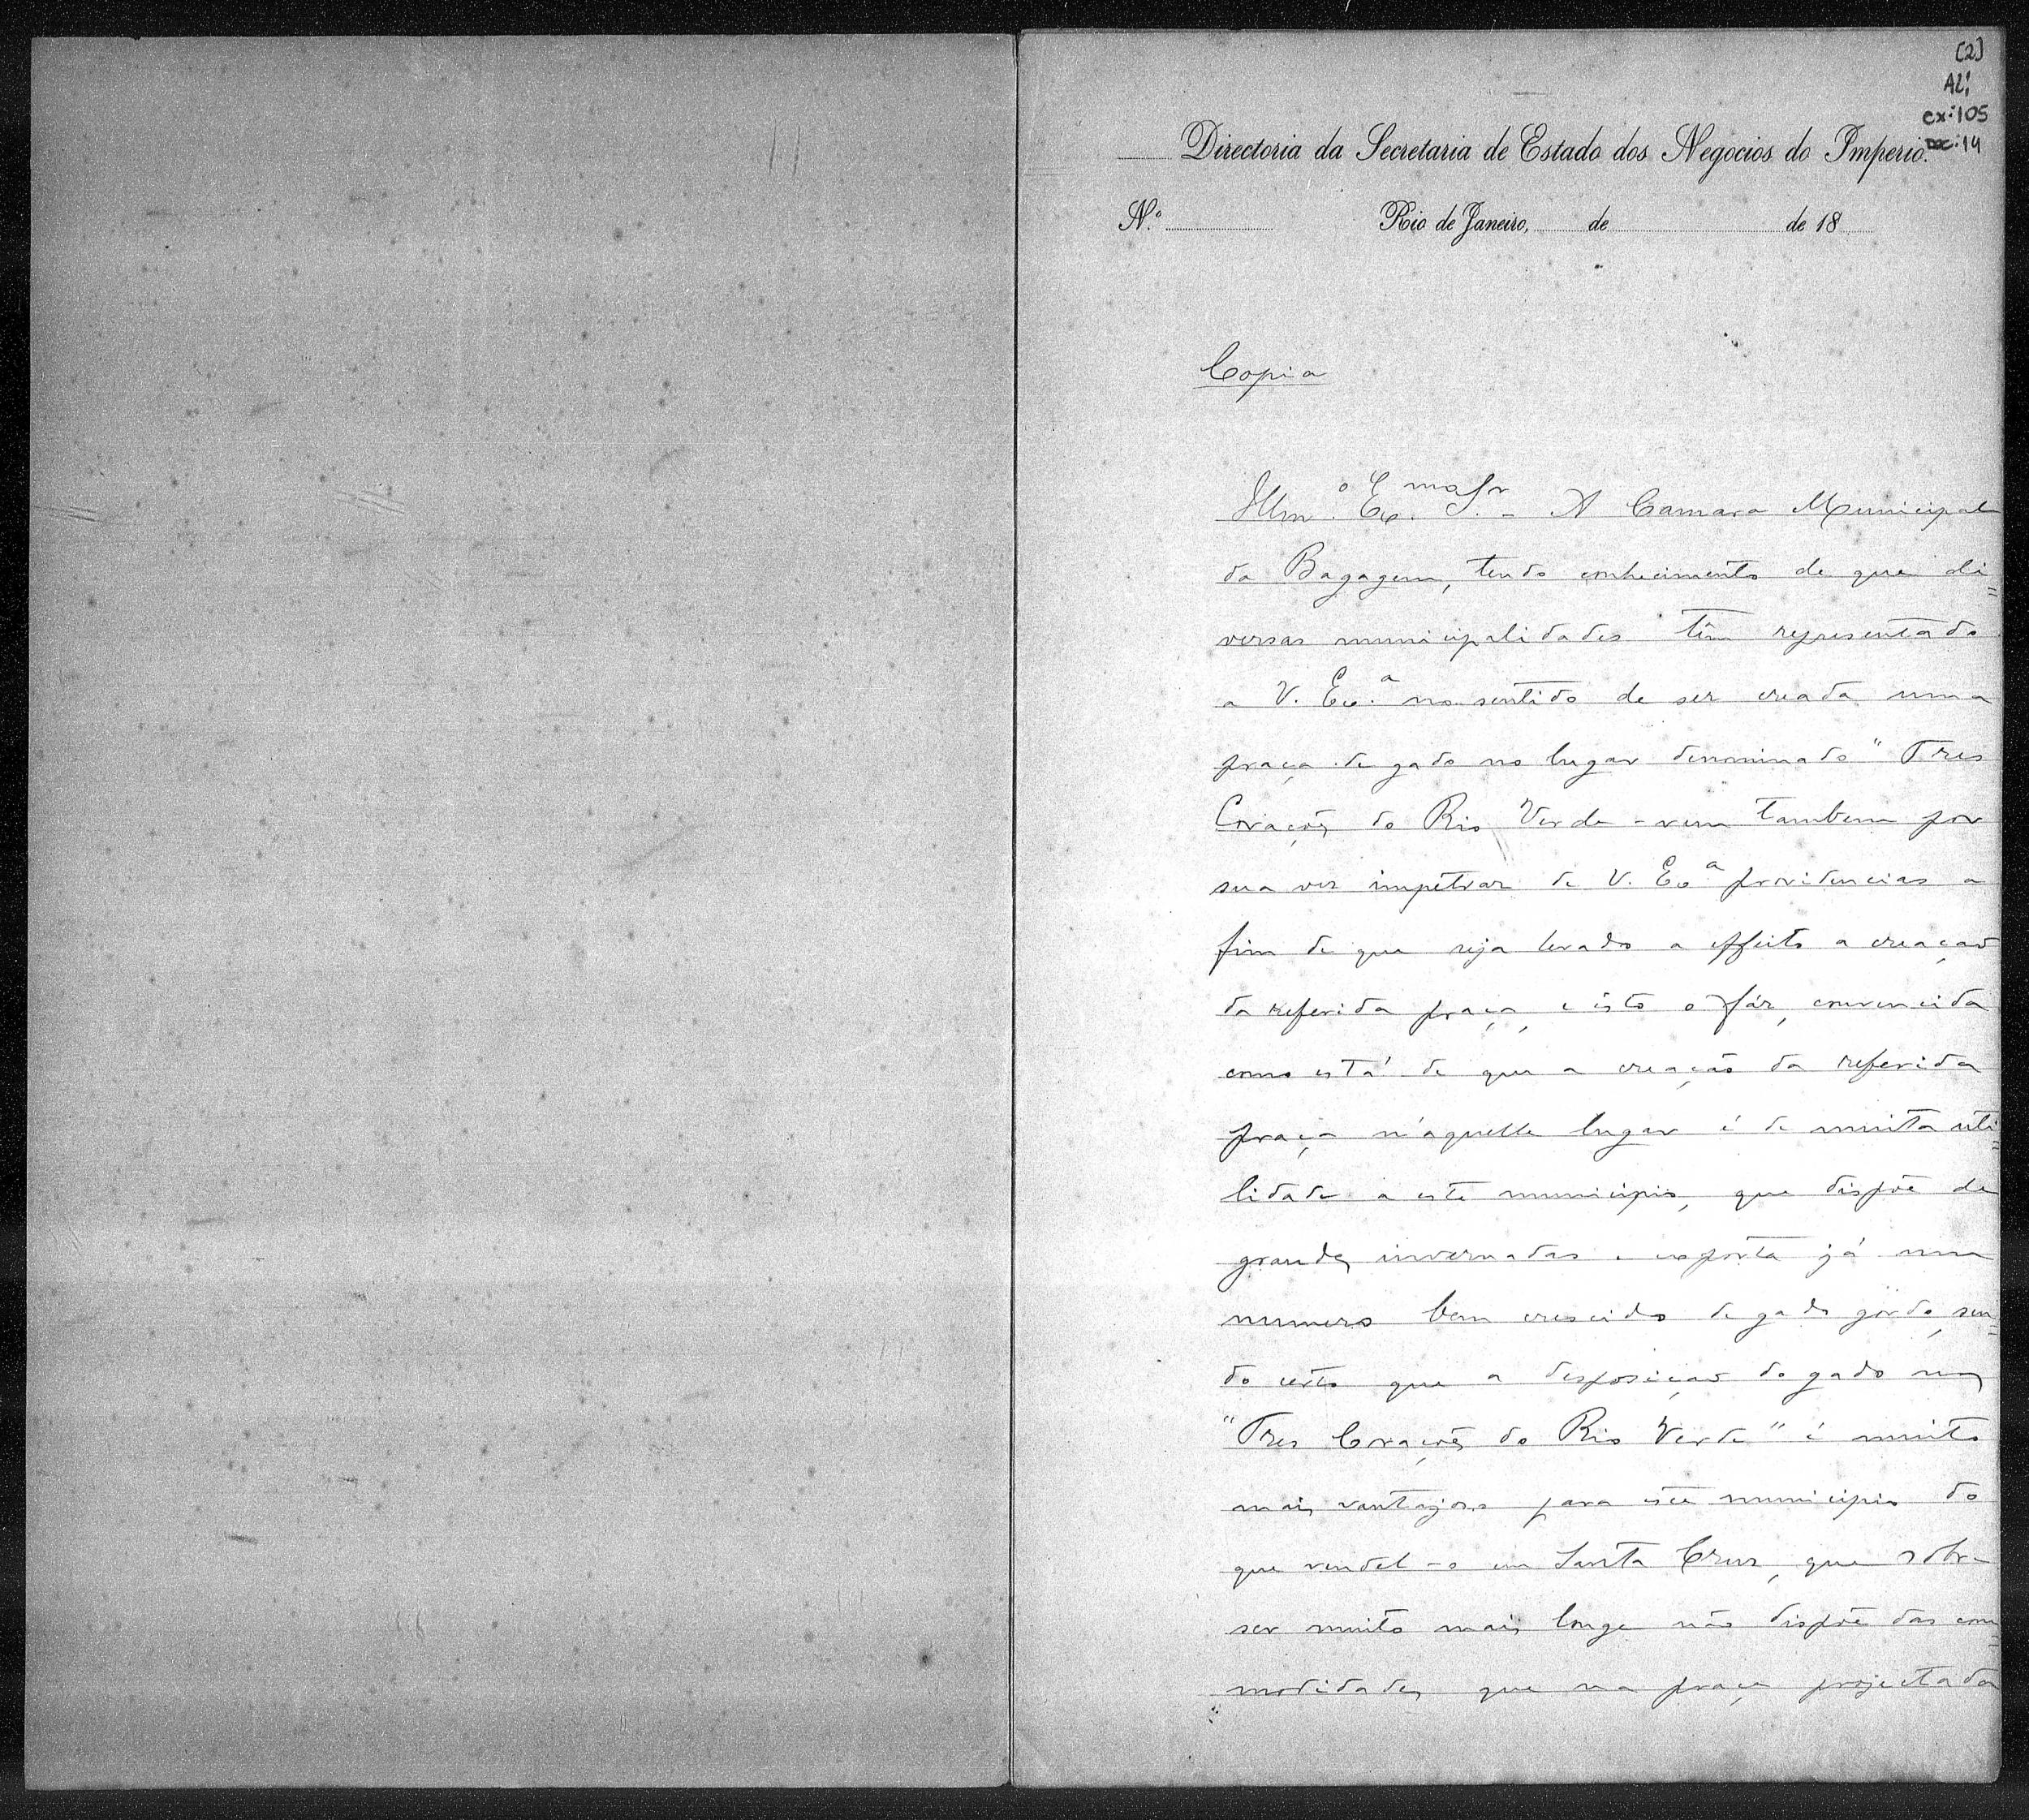 [2]
AI:
cx:105
doc:14
Directoria da Secretaria de Estado dos Negocios do Imperio.
N.º Rio de Janeiro, de de 18
Copia
Illm.º Ex.mo Sr. - A Camara Municipal
da Bagagem, tendo conhecimento de que di=
versas municipalidades têm representado
a V. Ex.ª no sentido de ser creada uma
praça de gado no lugar denominado "Tres
Corações do Rio Verde - vem tambem por
sua vez impetrar de V. Ex.ª providencias a
fim de que seja levado a effeito a creaçao
da referida praça, e isto o fáz, convencida
como está de que a creação da referida
praça n'aquelle lugar é de muita uti=
lidade a este municipio, que dispõe de
grandes invernadas e exporta já um
numero bem crescido de gado gordo, sen=
do certo que a desposiçao do gado nos
"Tres Corações do Rio Verde" é muito
mais vantajoso para este municipio do
que vendel-o em Santa Cruz, que sobre
ser muito mais longe não dispõe das com=
modidades que na praça projectada